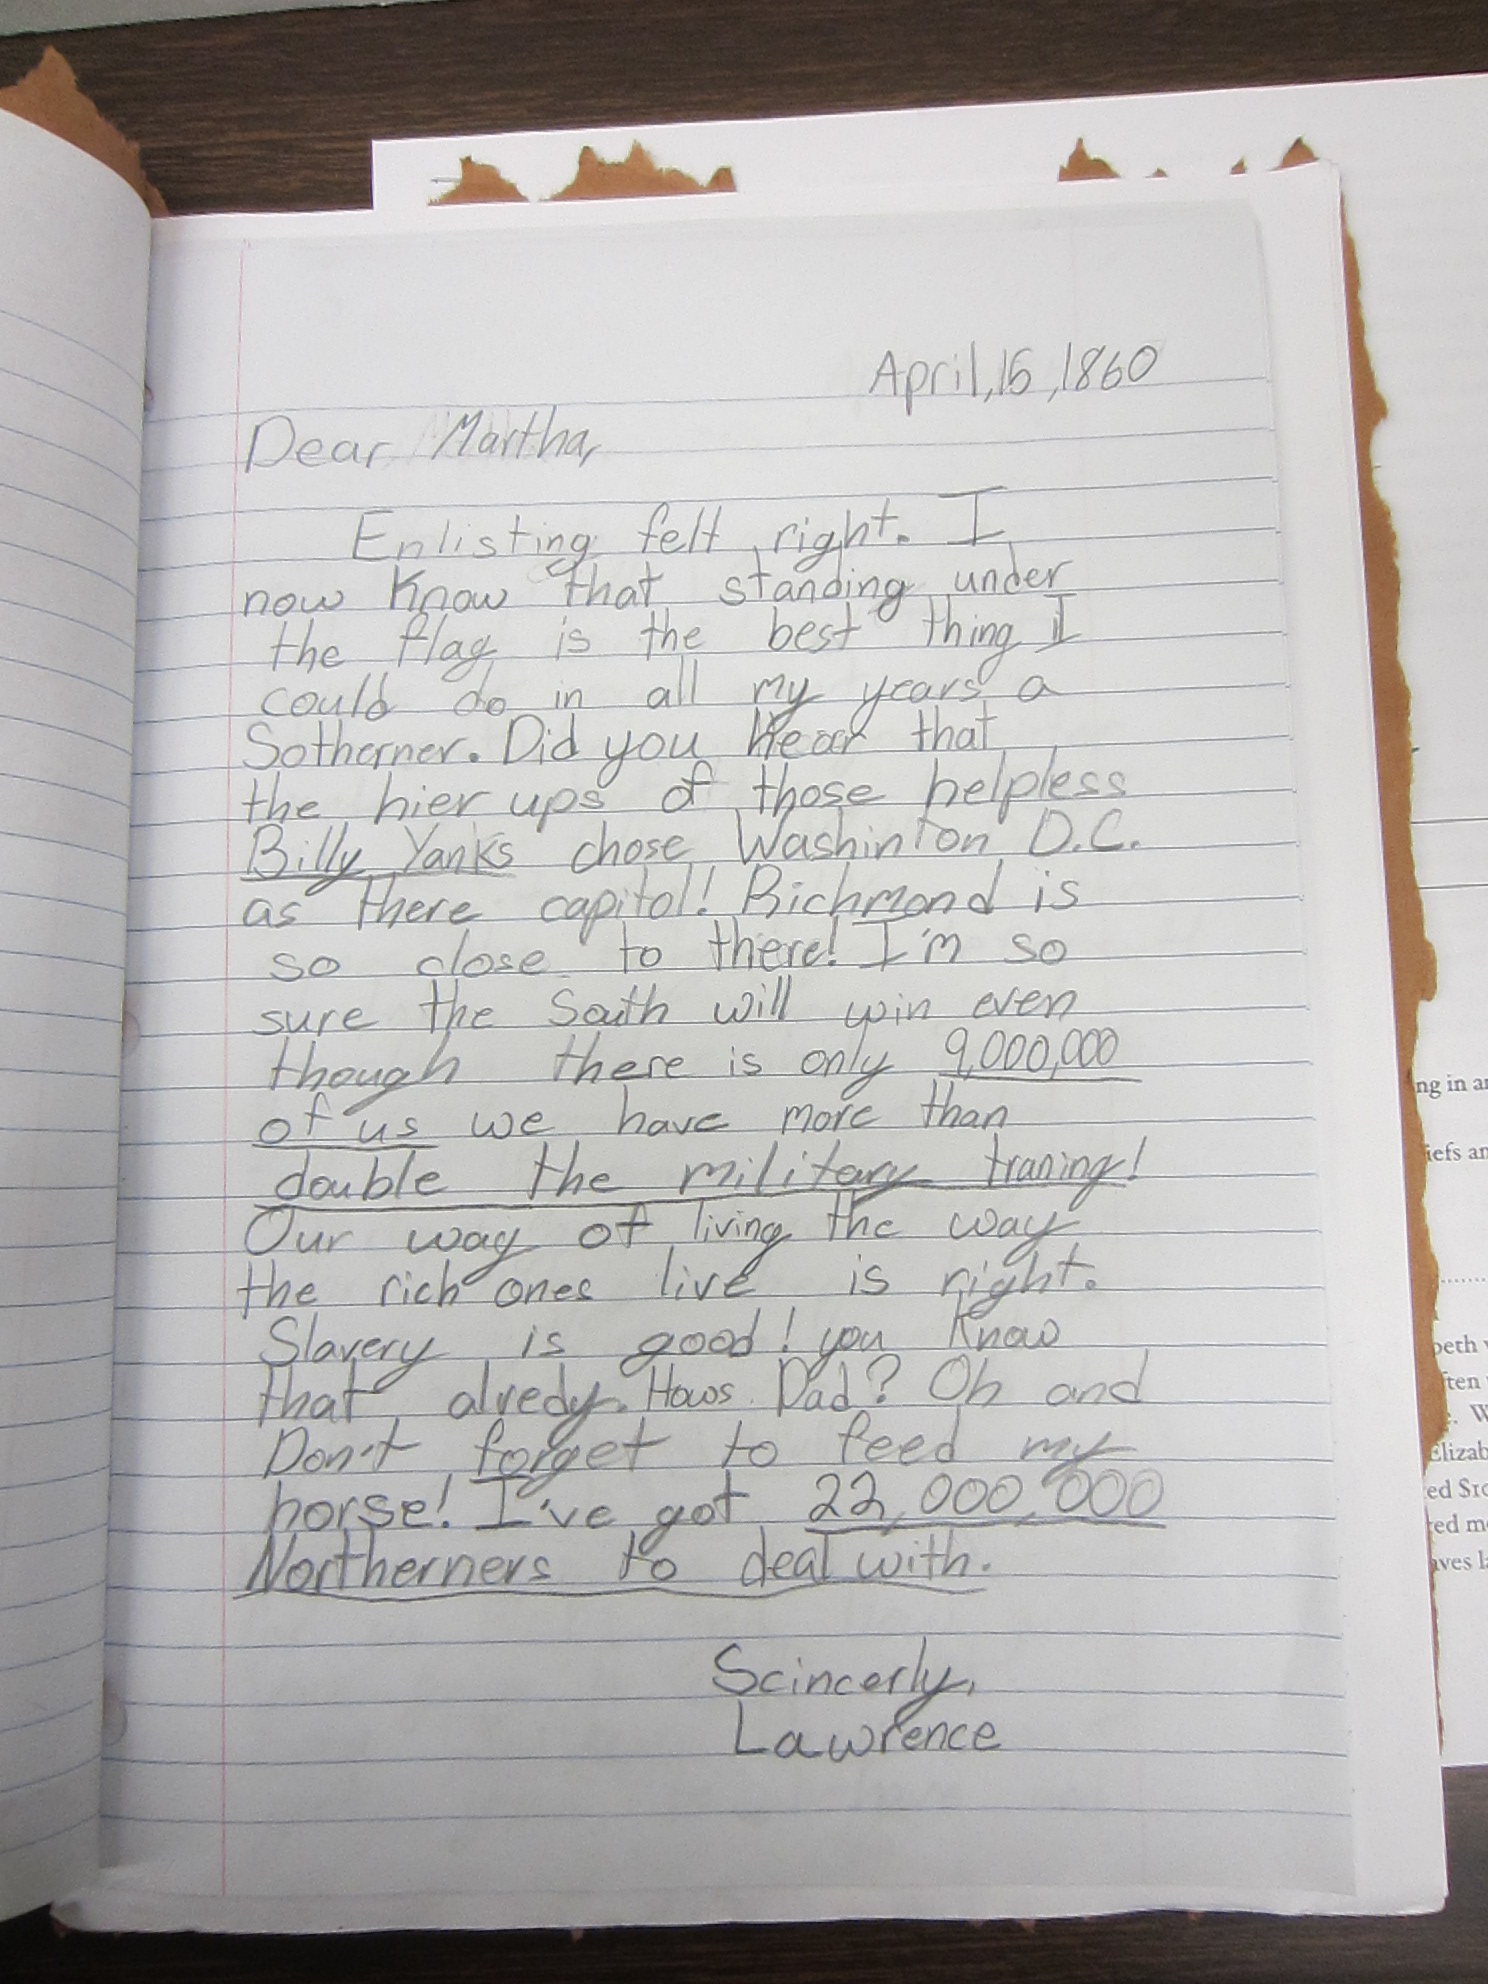 April, 15, 1860
Dear Martha,
Enlisting felt right. I
now know that standing under
the flag is the best thing I
could do in all my years a
Sotherner. Did you hear that
the hier ups of those helpless
Billy Yanks chose Washinton D.C.
as there capitol! Richmond is
so close to there! I'm so
sure the South will win even
though there is only 9,000,000
of us we have more than
double the military traning!
Our way of living the way
the rich ones live is right.
Slavery is good! you know
that alredy. Hows Dad? Oh and
Don't forget to feed my
horse! I've got 22,000,000
Northerners to deal with.
Scincerly,
Lawrence
ng in
iefs an
beth
ften
e. W
Elizab
ed Sto
ted m
aves la